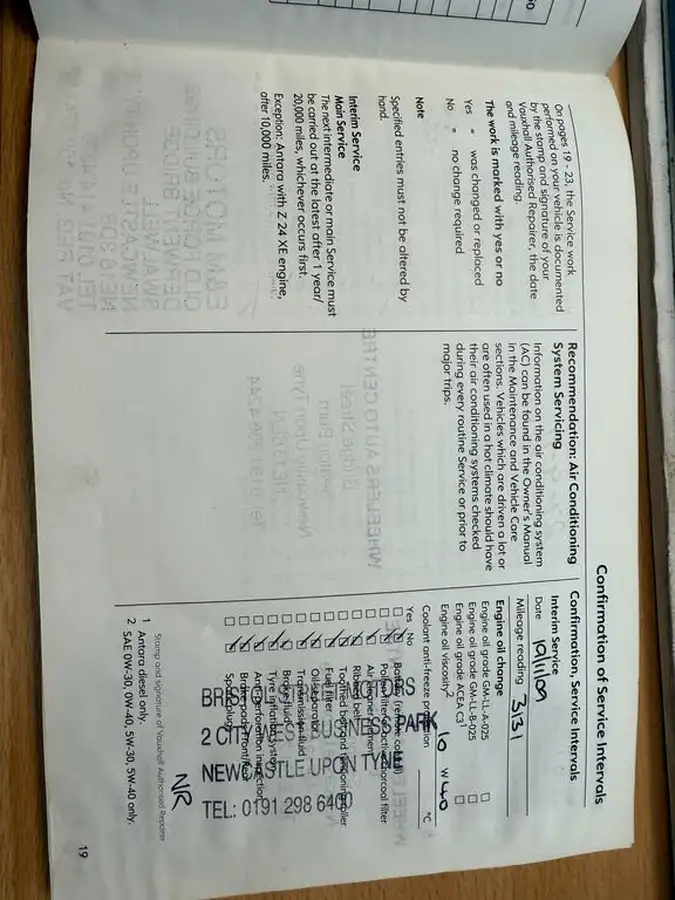 Confirmation of Service Intervals
On pages 19 - 23, the Service work
performed on your vehicle is documented
by the stamp and signature of your
Vauxhall Authorised Repairer, the date
and mileage reading.
The work is marked with yes or no
Yes = was changed or replaced
No = no change required
Note
Specified entries must not be altered by
hand.
Interim Service
Main Service
The next intermediate or main Service must
be carried out at the latest after 1 year/
20,000 miles, whichever occurs first.
Exception: Antara with Z 24 XE engine,
after 10,000 miles.
Recommendation: Air Conditioning
System Servicing
Information on the air conditioning system
(AC) can be found in the Owner's Manual
in the Maintenance and Vehicle Care
sections. Vehicles which are driven a lot or
are often used in a hot climate should have
their air conditioning systems checked
during every routine Service or prior to
major trips.
Confirmation, Service Intervals
Interim Service
Date 19/11/09
Mileage reading 3131
Engine oil change
Engine oil grade GM-LL-A-025
Engine oil grade GM-LL-B-025
Engine oil grade ACEA C3 1
Engine oil viscosity 2 10 W40
Coolant anti-freeze protection °C
Yes No
Battery (remote control)
Pollen filter charcoal filter
Air cleaner element
Ribbed belt
Toothed belt and tensioning roller
Fuel filter
Oil separator
Transmission fluid
Brake fluid
Tyre inflation system
Anti-perforation inspection
Brake pads front/rear
Spark plugs
2 CITY WEST BUSINESS PARK
NEWCASTLE UPON TYNE
TEL: 0191 298 6400
NR
Stamp and signature of Vauxhall Authorised Repairer
1 Antara diesel only.
2 SAE 0W-30, 0W-40, 5W-30, 5W-40 only.
19